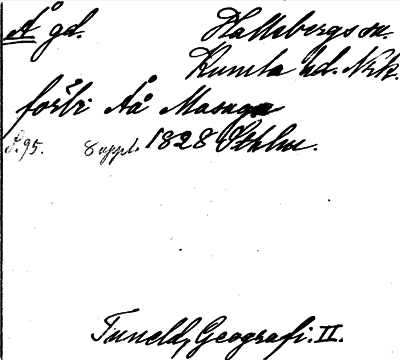 Å gd. Hallsbergs sn.
Kumla hd. Nrk.
förbi Åå
S. 95. 8 uppl. 1828 Sthlm.
Tuneld, Geografi. II.